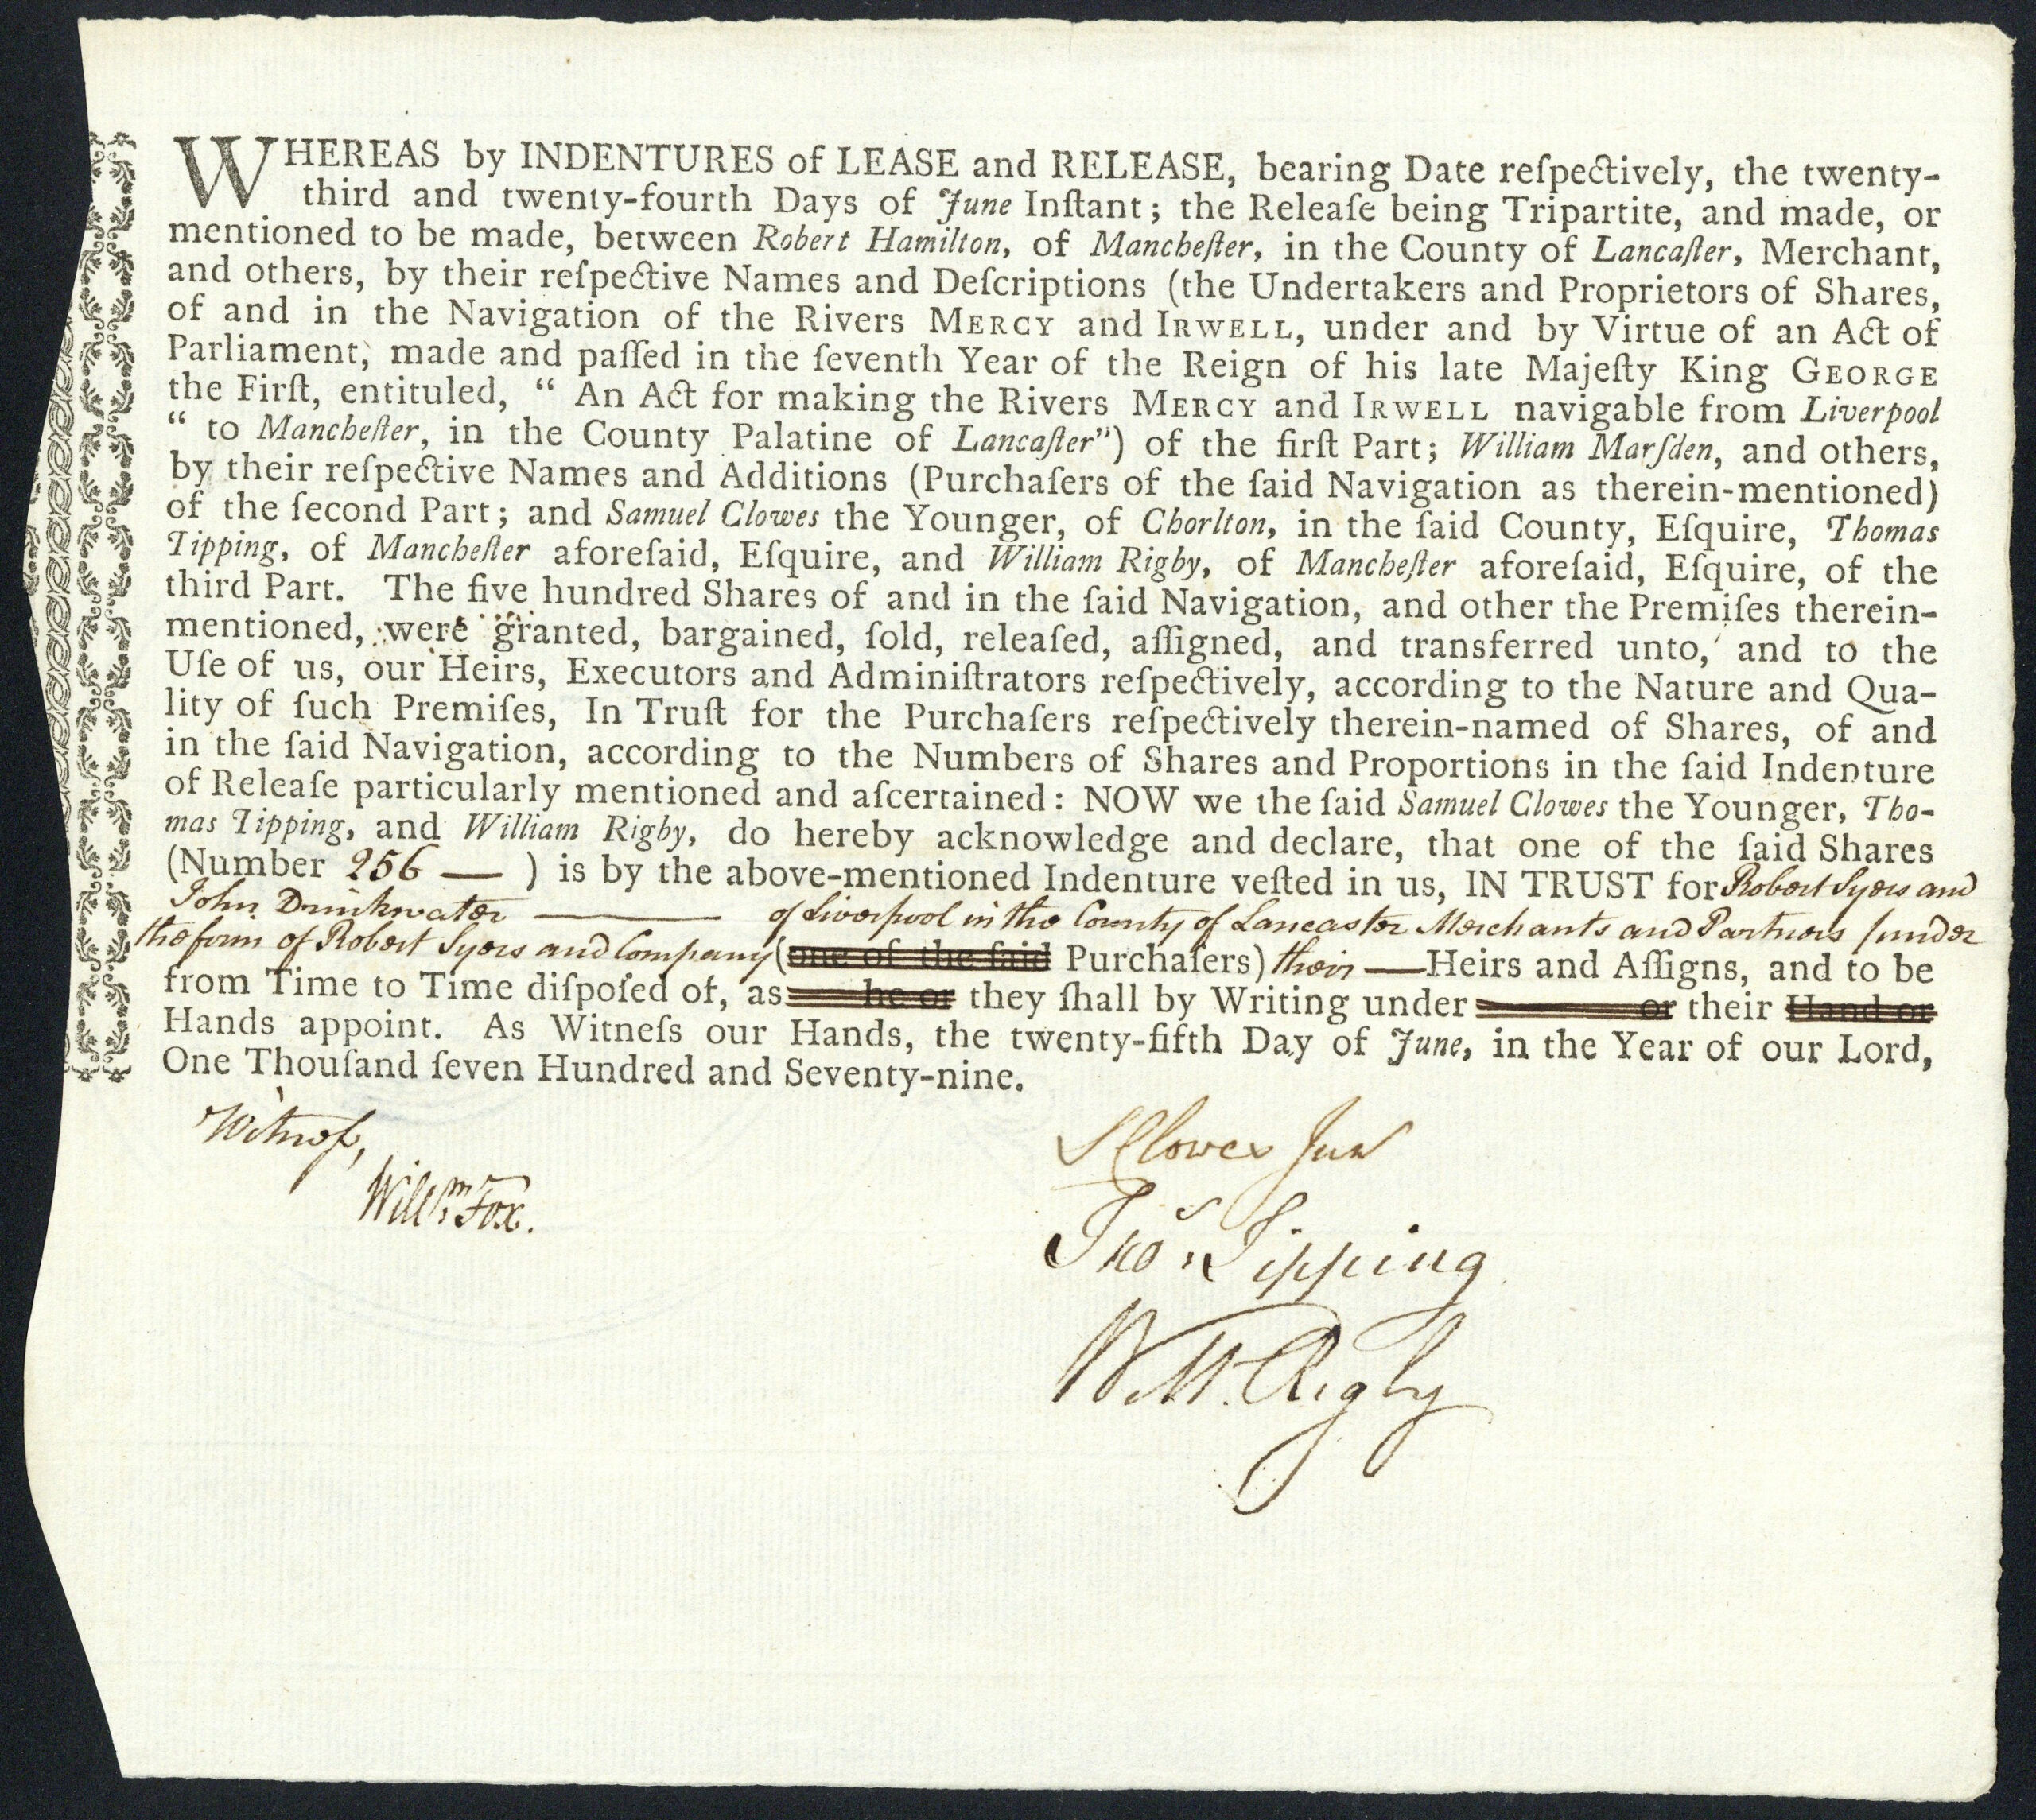 WHEREAS by INDENTURES of LEASE and RELEASE, bearing Date reſpectively, the twenty-
third and twenty-fourth Days of June Inſtant; the Releaſe being Tripartite, and made, or
mentioned to be made, between Robert Hamilton, of Mancheſter, in the County of Lancaſter, Merchant,
and others, by their reſpective Names and Deſcriptions (the Undertakers and Proprietors of Shares,
of and in the Navigation of the Rivers MERCY and IRWELL, under and by Virtue of an Act of
Parliament, made and paſſed in the ſeventh Year of the Reign of his late Majeſty King GEORGE
the Firſt, entituled, “ An Act for making the Rivers MERCY and IRWELL navigable from Liverpool
“ to Mancheſter, in the County Palatine of Lancaſter”) of the firſt Part; William Marſden, and others,
by their reſpective Names and Additions (Purchaſers of the ſaid Navigation as therein-mentioned)
of the ſecond Part; and Samuel Clowes the Younger, of Chorlton, in the ſaid County, Eſquire, Thomas
Tipping, of Mancheſter aforeſaid, Eſquire, and William Rigby, of Mancheſter aforeſaid, Eſquire, of the
third Part. The five hundred Shares of and in the ſaid Navigation, and other the Premiſes therein-
mentioned, were granted, bargained, ſold, releaſed, aſſigned, and transferred unto, and to the
Uſe of us, our Heirs, Executors and Adminiſtrators reſpectively, according to the Nature and Qua-
lity of ſuch Premiſes, In Truſt for the Purchaſers reſpectively therein-named of Shares, of and
in the ſaid Navigation, according to the Numbers of Shares and Proportions in the ſaid Indenture
of Releaſe particularly mentioned and aſcertained: NOW we the ſaid Samuel Clowes the Younger, Tho-
mas Tipping, and William Rigby, do hereby acknowledge and declare, that one of the ſaid Shares
(Number 256 — ) is by the above-mentioned Indenture veſted in us, IN TRUST for Robert Syers and
John Drinkwater — of Liverpool in the County of Lancaster Merchants and Partners (under
the firm of Robert Syers and Company (one of the ſaid Purchaſers) their — Heirs and Aſſigns, and to be
from Time to Time diſpoſed of, as he or they ſhall by Writing under or their Hand or
Hands appoint. As Witneſs our Hands, the twenty-fifth Day of June, in the Year of our Lord,
One Thouſand ſeven Hundred and Seventy-nine.
Witneſs,
Willm Fox.
S Clowes Jun
Thos Tipping
Wm. Rigby